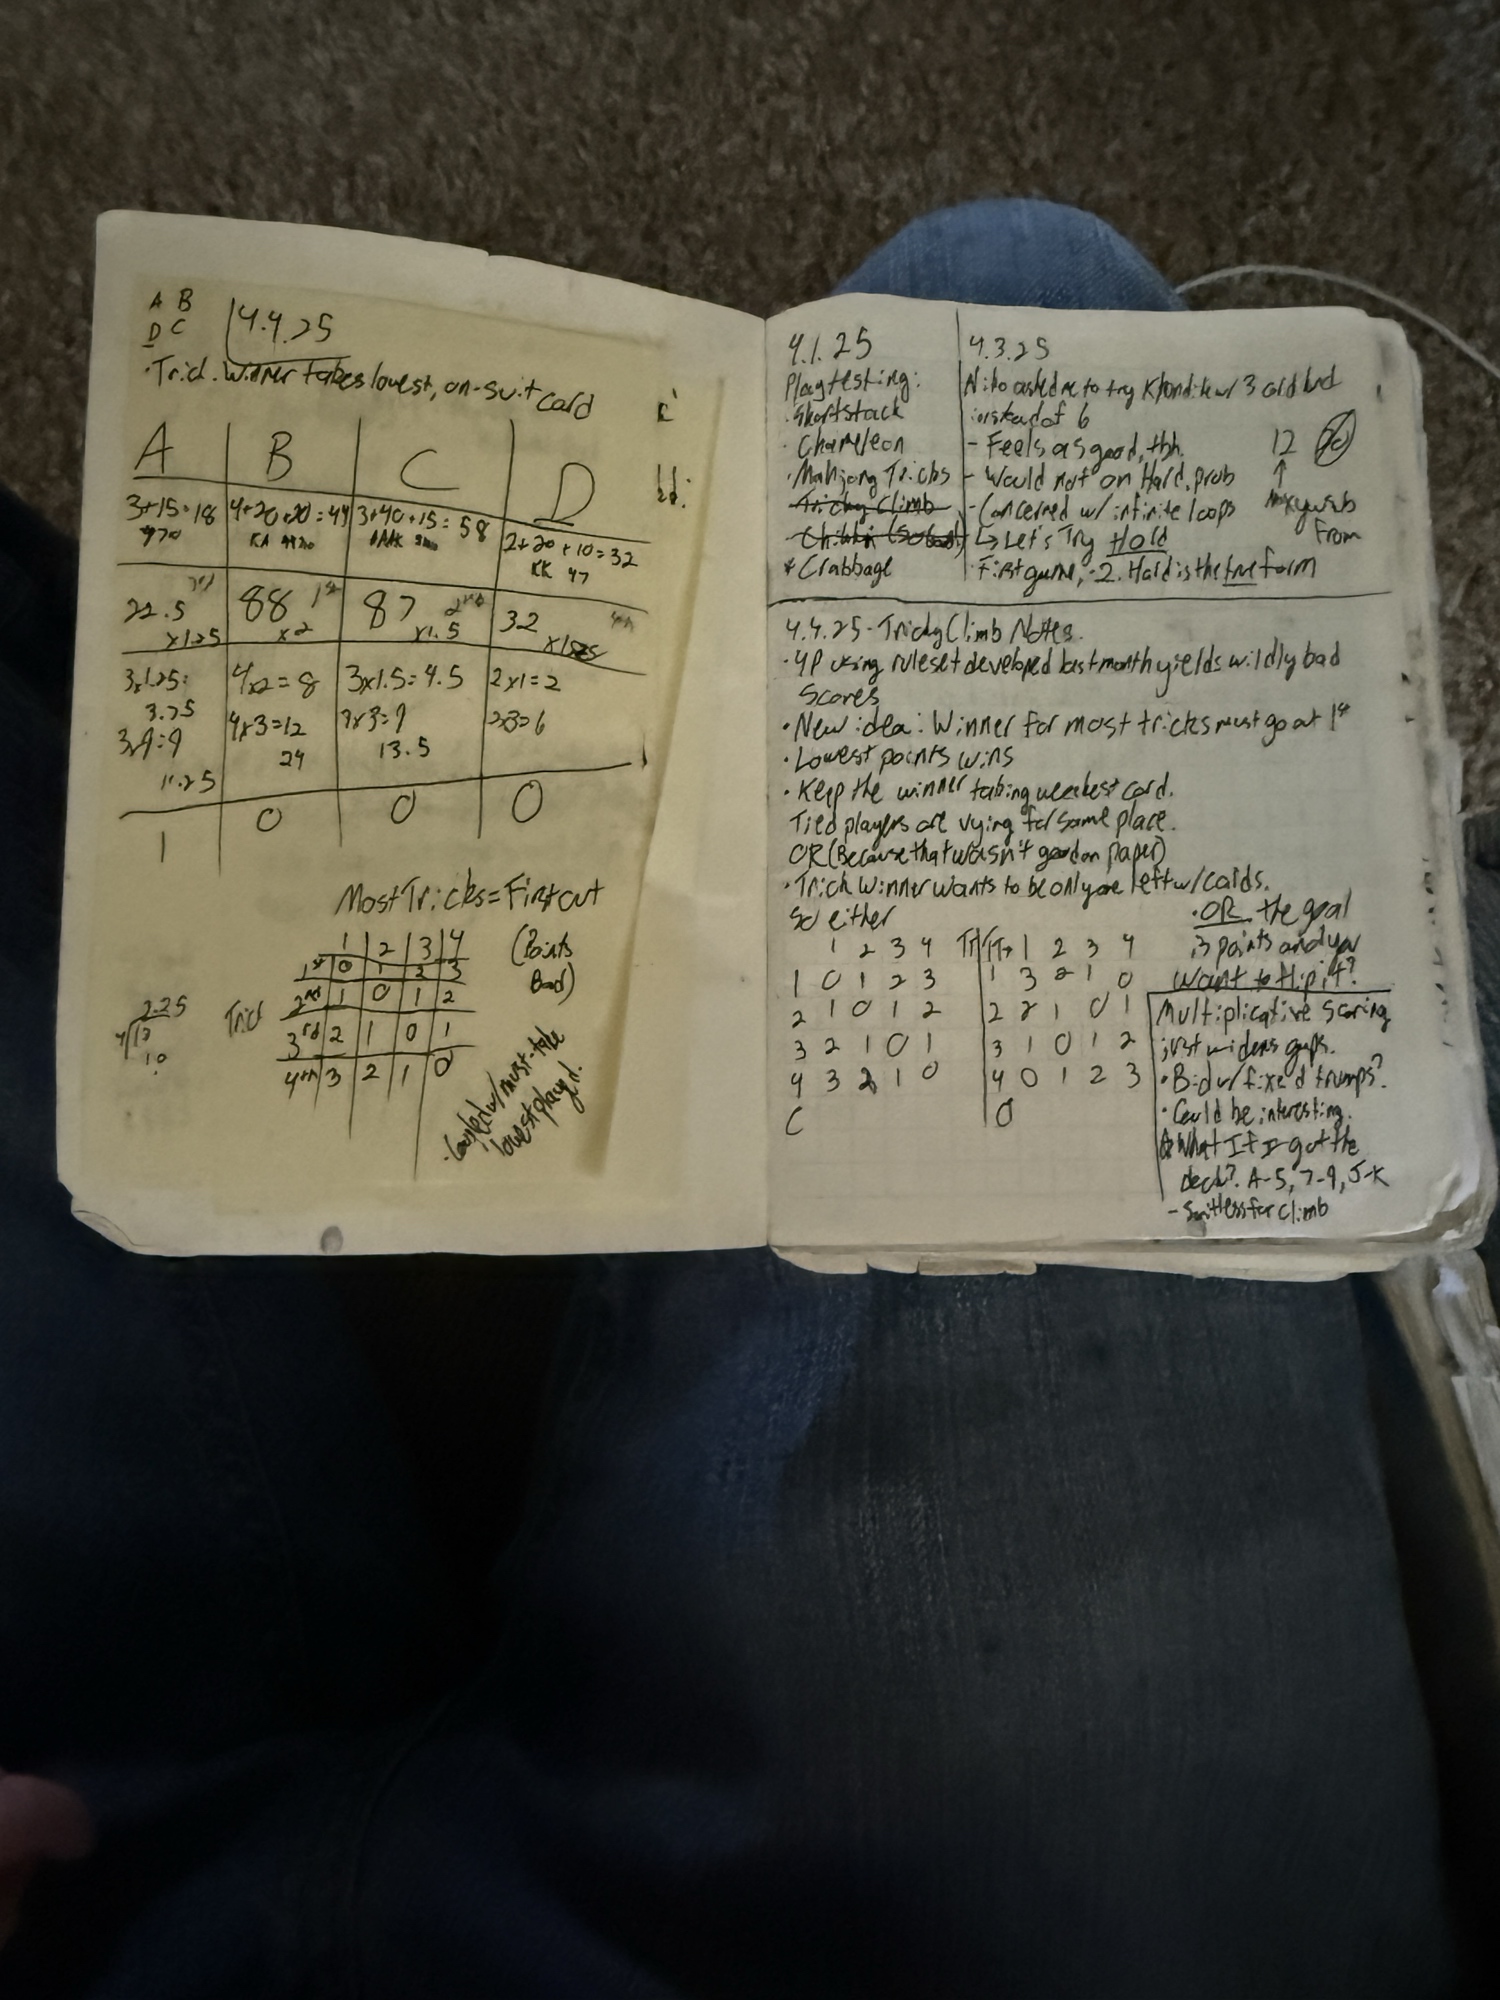 A B
D C
4.4.25
·Trick Winner takes lowest, on-suit card
A B C D
3+15=18 4+20+20=44 3+40+15=58 2+20+10=32
KA KK 47
22.5 88 1st 87 2nd 32
x1.25 x2 x1.5
3x1.25= 4x2=8 3x1.5=4.5 2x1=2
3.75 4x3=12 3x3=9 2x3=6
3x9=9 24 13.5
11.25
1 0 0 0
Most Tricks=First out
1 2 3 4 (Points
1st 0 1 2 3 Bad)
2nd 1 0 1 2
Trick
3rd 2 1 0 1
4th 3 2 1 0
2.25
·Coupled w/ must-take
lowest played.
4.1.25
Playtesting:
·Shortstack
·Chameleon
·Mahjong Tricks
Tricky Climb
* Crabbage
4.3.25
Nito asked me to try w/ 3 cold
instead of 6
- Feels as good, tbh.
- Would not on Hard, prob
- Concerned w/ infinite loops
↳ Let's Try Hard
- First game, -2. Hard is the true form
12
↑
from
4.4.25-Tricky Climb Notes.
·4P using ruleset developed last month yields wildly bad
scores
·New idea: Winner for most tricks must go out 1st
·Lowest points wins
·Keep the winner taking weakest card.
Tied players are vying for same place.
OR (Because that wasn't good on paper)
·Trick Winner wants to be only one left w/ cards.
So either
1 2 3 4
1 0 1 2 3
2 1 0 1 2
3 2 1 0 1
4 3 2 1 0
C
1 2 3 4
1 3 2 1 0
2 2 1 0 1
3 1 0 1 2
4 0 1 2 3
0
·OR the goal
is points and you
want to flip it?
Multiplicative Scoring
just widens gaps.
·Bid w/ fixed trumps?
·Could be interesting.
What If I got the
deck? A-5, 7-9, J-K
- Suitless for climb